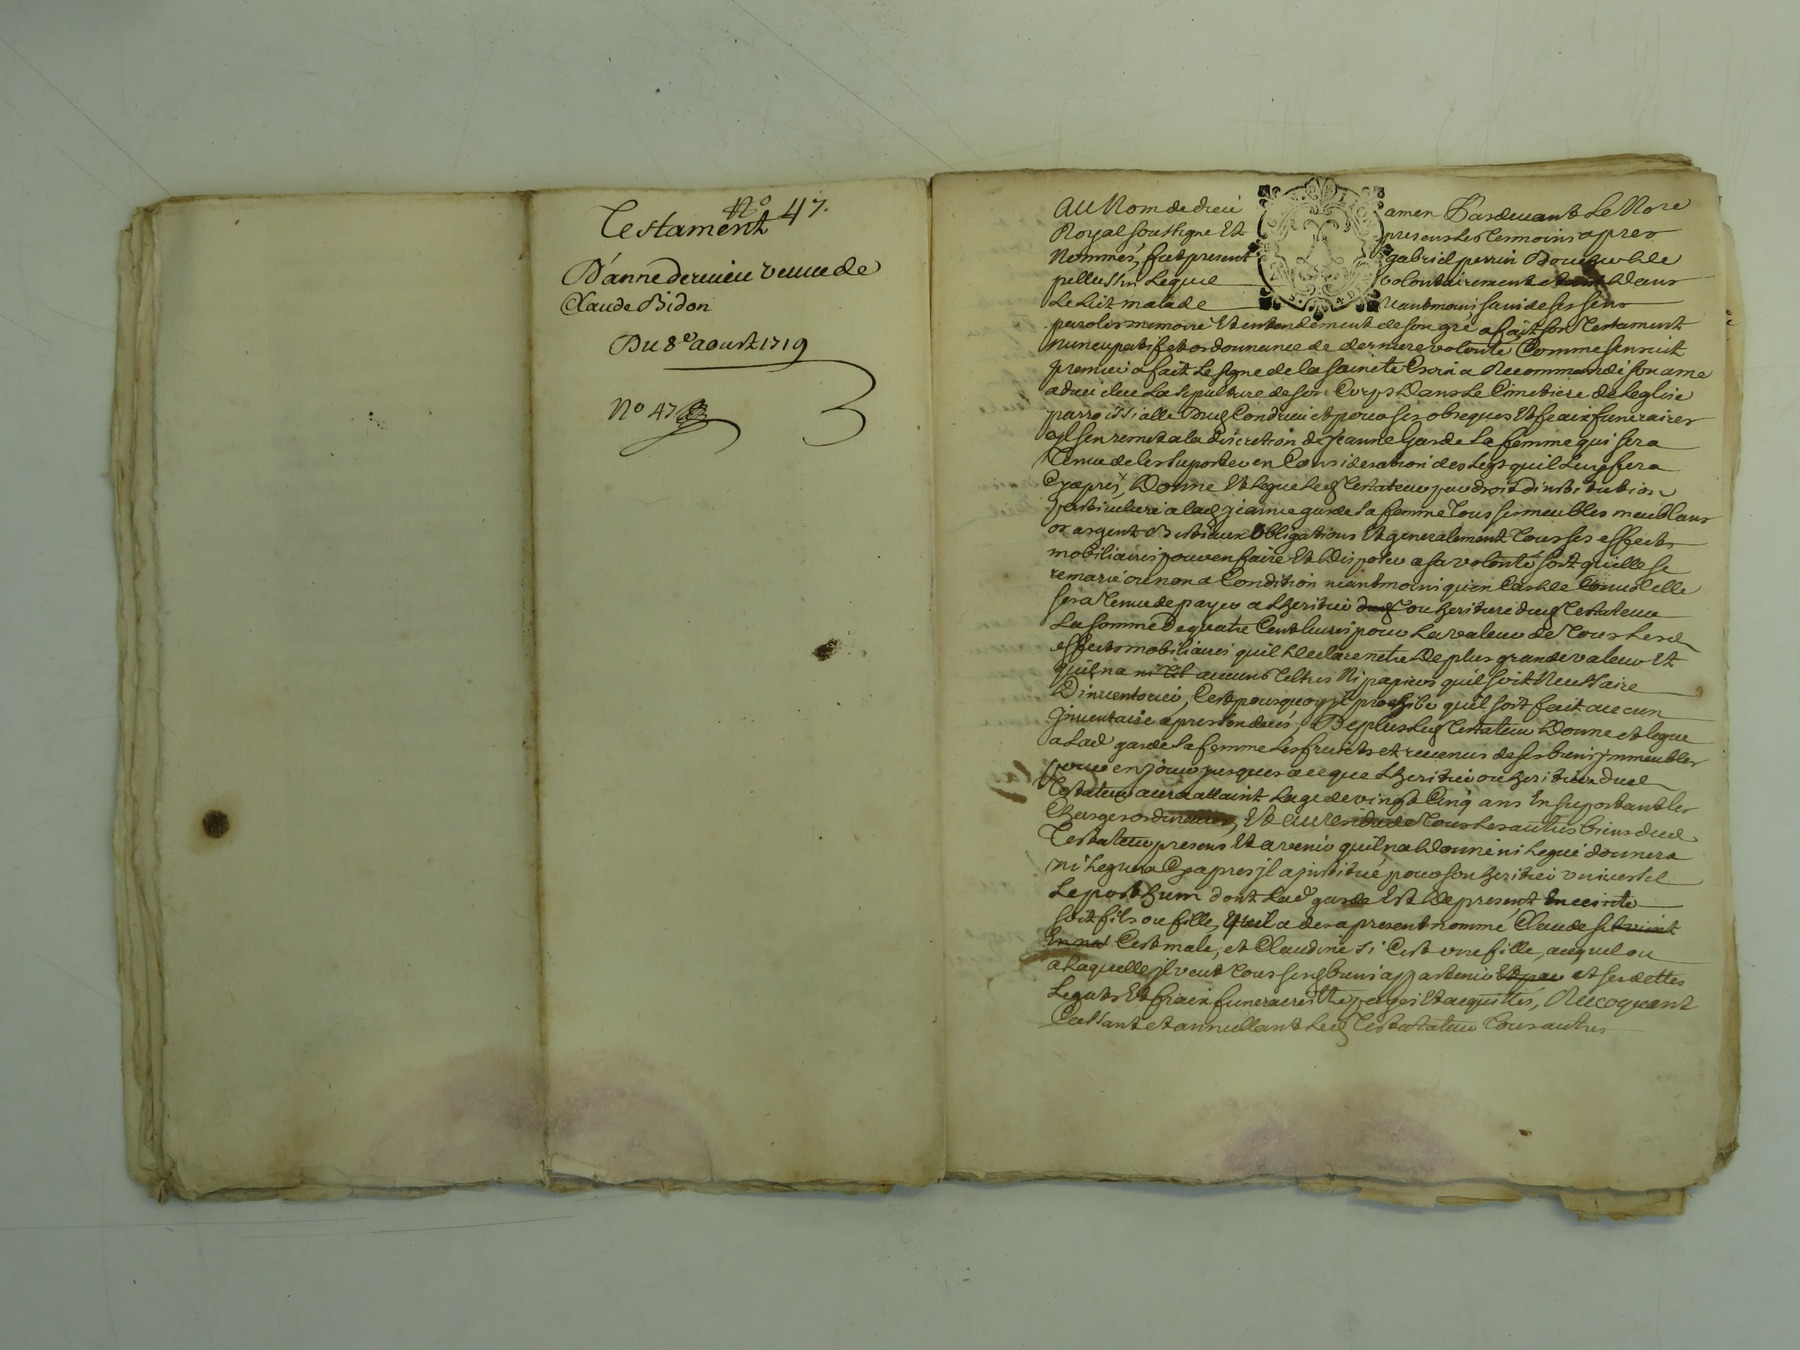 No 47.
Testament
D'anne dernieu veuve de
Claude Bidon
Du 8e aoust 1719
No 47
AU Nom de dieu amen Pardevant Le Nore
Royal soussigne Et presens Les Tesmoins apres
Nommés, fut present gabriel perrin de
pellussin Lequel volontairement dans
Le Lit malade neantmoins sain de ses sens
parolles memoire Et entendement de son gré a fait son Testament
nuncupatif et ordonnance de derniere volonté Comme s'ensuit
premier a fait Le signe de la sainte Croix a Recommandé son ame
a dieu eleu La sepulture de son Corps Dans Le Cimetiere de Leglise
parroissialle Dud Condrieu et pour ses obseques Et fraix funeraires
il s'en remet a la discretion de jeanne Garde sa femme qui sera
Tenue de les suporter en Consideration des Legs quil Luy fera
Cy apres, Donne Et Legue Led Testateur par droit d'institution
particuliere a lad jeanne garde sa femme Tous ses meubles meublans
or argent Bestiaux Obligations Et generalement Tous ses effects
mobiliaires pour en faire Et Disposer a sa volonté soit qu'elle se
remarie ou non a Condition neantmoins qu'en Cas de elle
sera Tenue de payer a Lheritier dud ou heritiere dud Testateur
La somme De quatre Cent livres pour La valeur de Tous Lesd
effects mobiliaires quil Declare n'etre De plus grande valeur Et
quil na aucuns Titres Ni papiers quil soit Necessaire
D'inventorier, C'est pourquoy il prohibe qu'il soit fait aucun
Inventaire apres son deces, De plus Led Testateur Donne et legue
a Lad garde sa femme Les fruits et revenus de ses biens jmmeubles
pour en jouir jusques a ce que Lheritier ou heritiere dud
Testateur aura attaint Lage de vingt Cinq ans En suportant les
Charges ordinaires, Et au Residu de Tous Les autres biens dud
Testateur presens Et avenir quil na Donné ni Legué donnera
ni Leguera Cy apres il a jnstitué pour son heritier universel
Le posthum dont Lad garde Est De present Enceinte
soit fils ou fille, quil a des a present nommé Claude si vient
En nat C'est male, et Claudine si C'est une fille, auquel ou
a Laquelle il veut Tous sesd biens appartenir Et par et ses dettes
Legats Et fraix funeraires Etre payés Et acquittés, Revoquant
Cassant et annullant Led Testatateur Tous autres